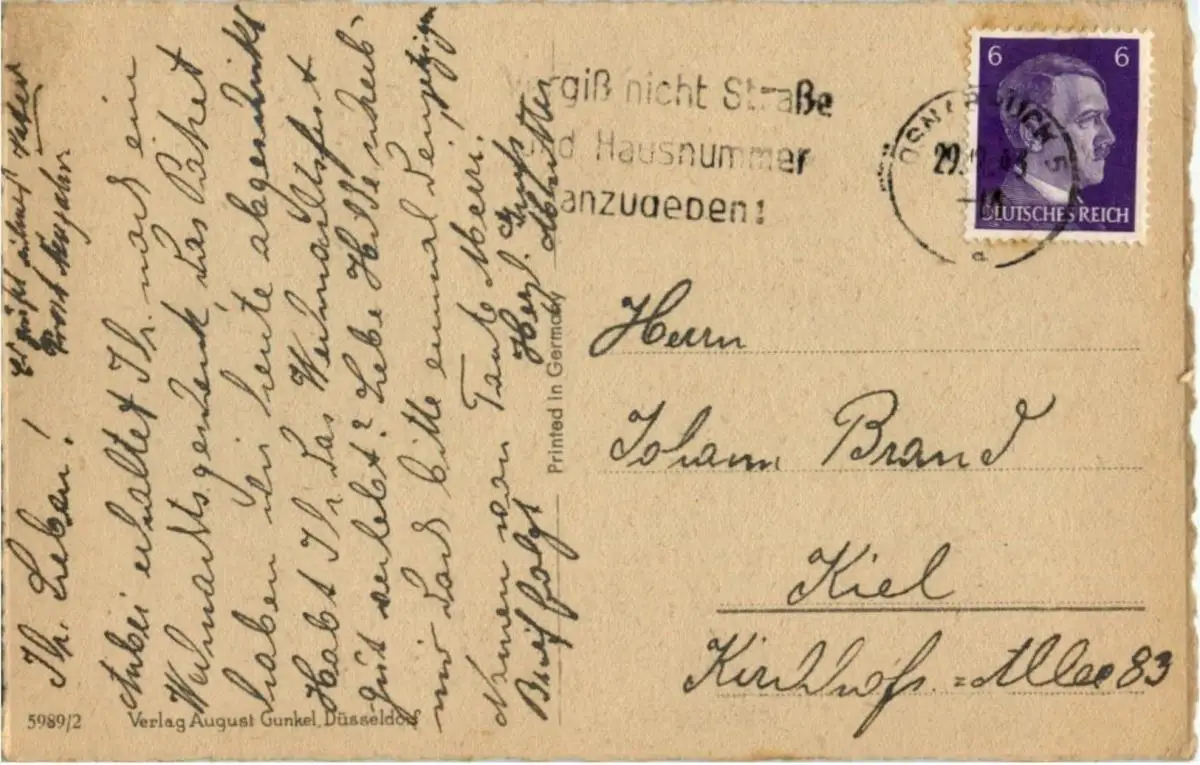 Ihr Lieben!
Anbei erhaltet Ihr noch ein
Weihnachtsgeschenk das Paket
haben wir heute abgeschickt
Habt Ihr das Weihnachtsfest
gut verlebt? Liebe Hilde schreib-
mir doch bitte einmal den jetzigen
Namen von Tante Meri.
Brief folgt Herzl. Grüße Mutter
Prost Neujahr
Vergiß nicht Straße
und Hausnummer
anzugeben!
OSNABRÜCK 5
29.12.43
6 6
DEUTSCHES REICH
Printed in Germany
Herrn
Johann Brand
Kiel
Kirchhofs.=Allee 83
5989/2 Verlag August Gunkel, Düsseldorf